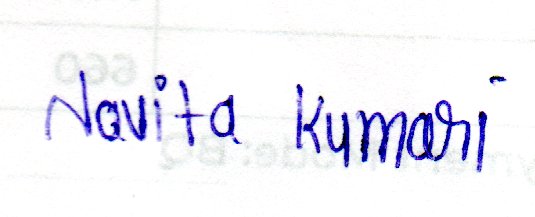 Navita Kumari